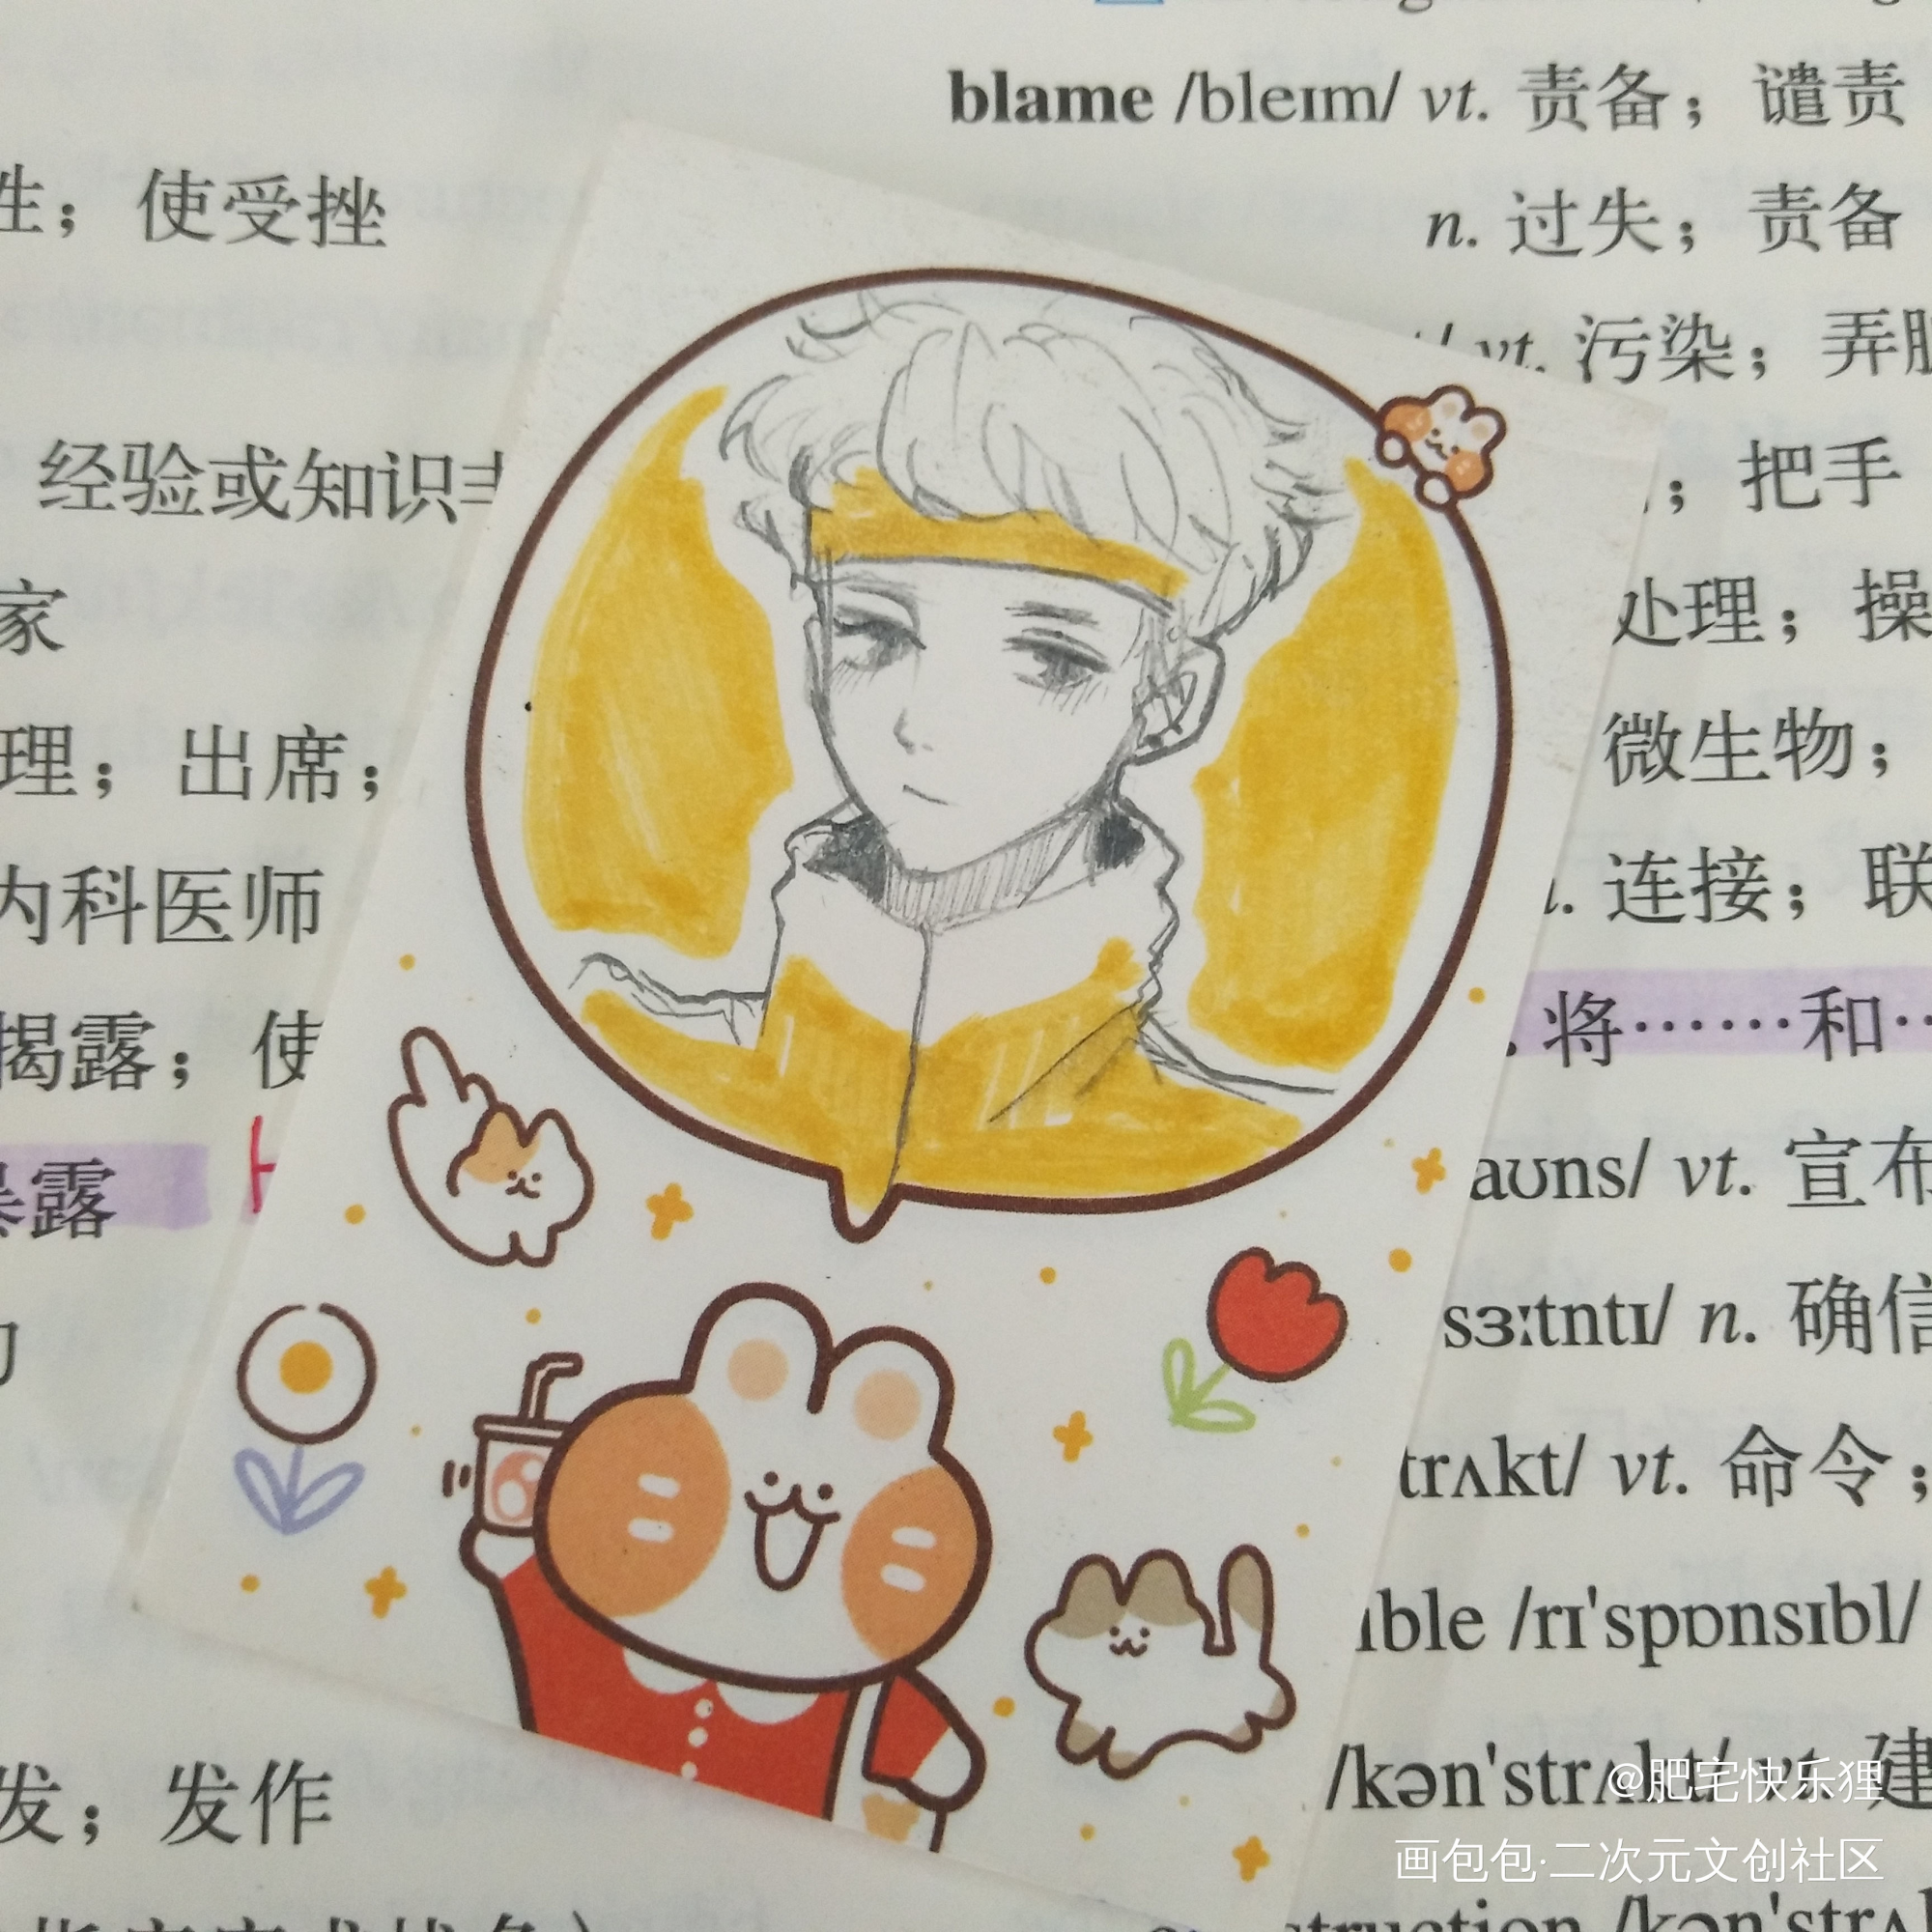 blame /bleɪm/ vt. 责备；谴责
性；使受挫
n. 过失；责备
vt. 污染；弄
经验或知识
；把手
家
处理；操
理；出席；
微生物；
内科医师
连接；联
揭露；使
将……和…
暴露
aʊns/ vt. 宣布
sɜːtntɪ/ n. 确信
trʌkt/ vt. 命令；
ible /rɪ'spɒnsɪbl/
/kən'strʌkt/ vt. 建
发；发作
@肥宅快乐狸
画包包·二次元文创社区
struction /kən'strʌ